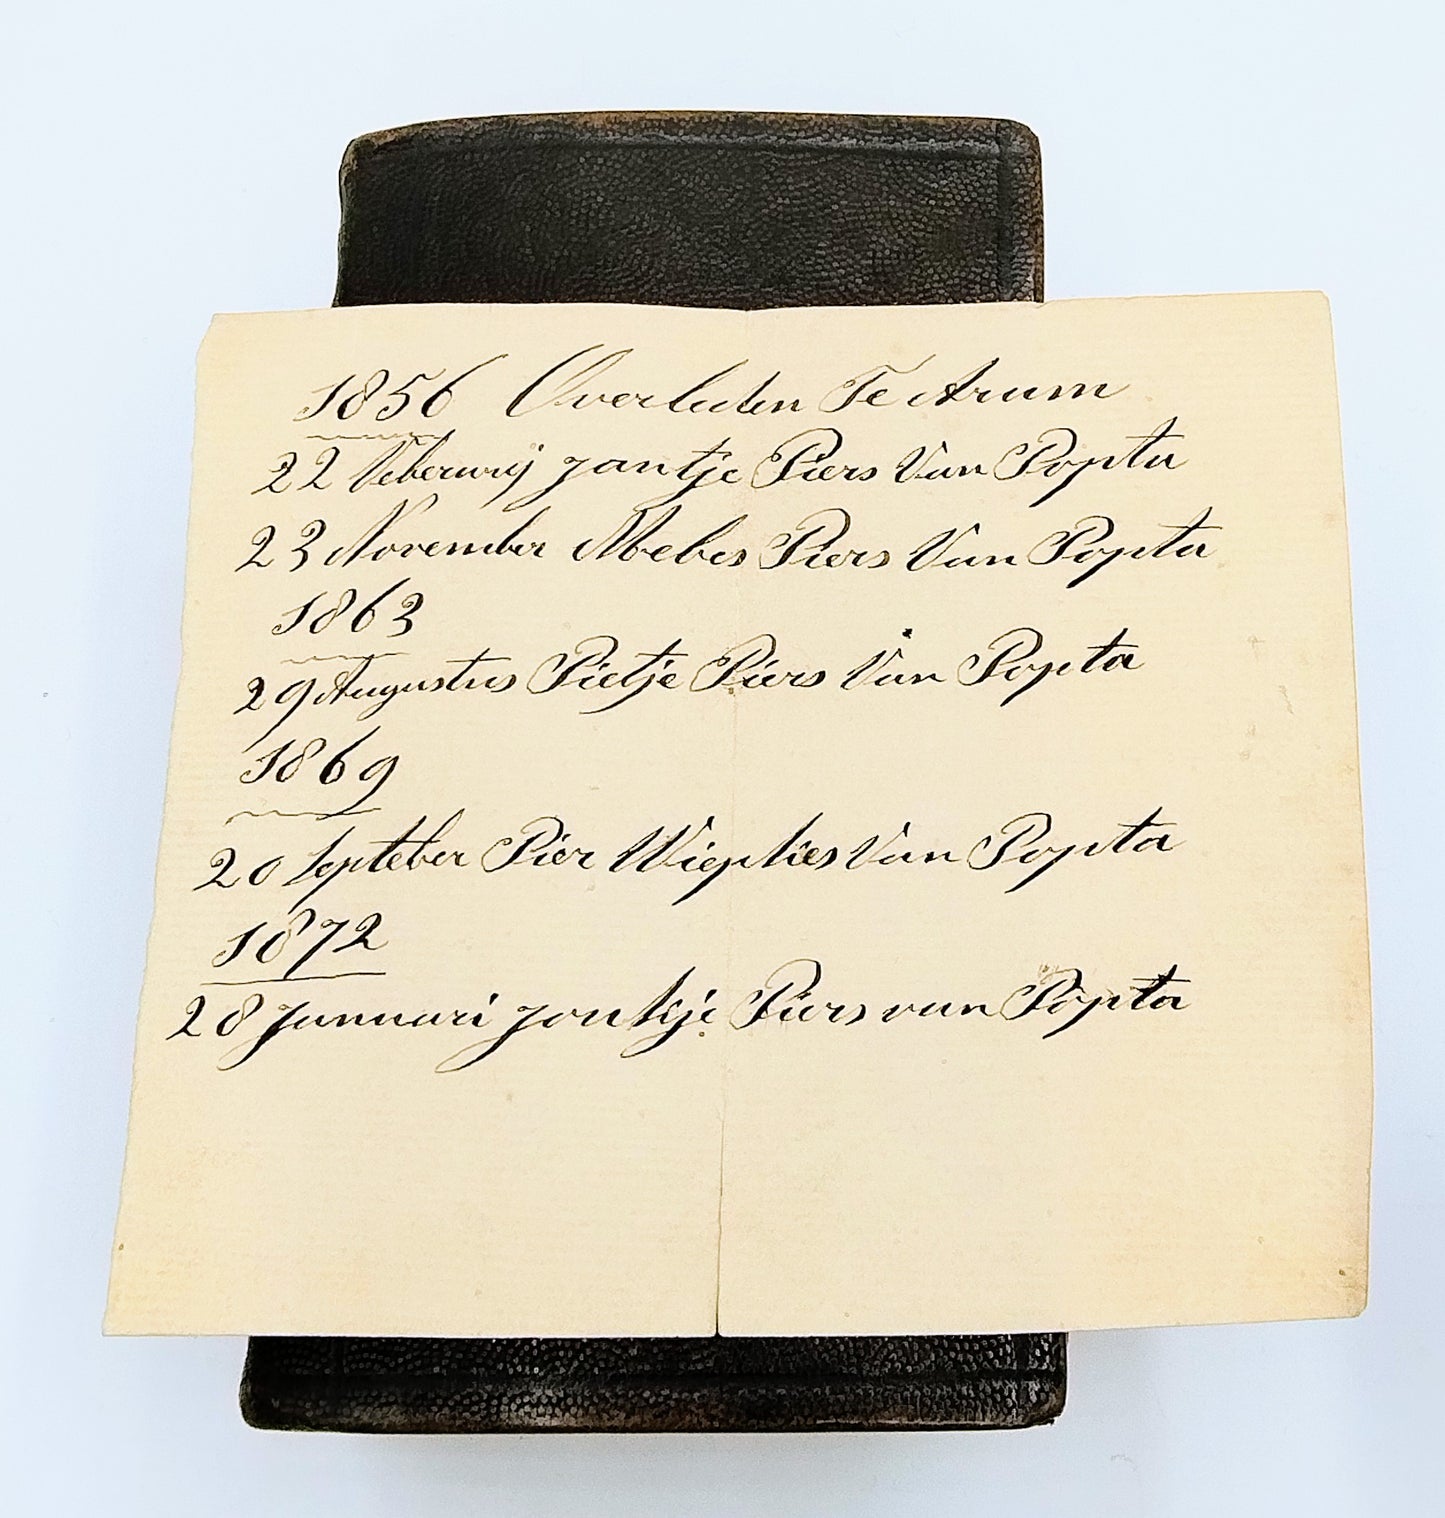 1856 Overleden Te Arum
22 Veberwrij jantje Piers Van Popta
23 November Mebes Piers Van Popta
1863
29 Augustus Pietje Piers Van Popta
1869
20 Septeber Pier Wiepkies Van Popta
1872
28 Januuari jontkje Piers van Popta